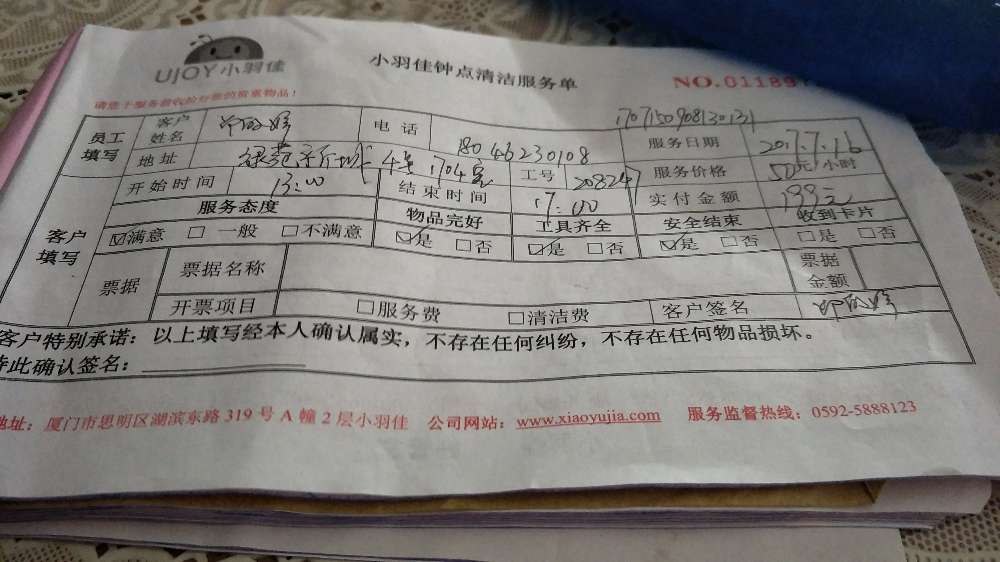 UJOY小羽佳
小羽佳钟点清洁服务单
NO.01189
请您于服务前收拾好您的贵重物品!
170715090813013
员工填写 客户姓名 电话 18046230108 服务日期 2017.7.16
地址 4号1704室 工号 208247 服务价格 50元/小时
开始时间 13:00 结束时间 17:00 实付金额 199元
客户填写 服务态度 物品完好 工具齐全 安全结束 收到卡片
☑满意 □一般 □不满意 ☑是 □否 ☑是 □否 ☑是 □否 □是 □否
票据 票据名称 票据金额
开票项目 □服务费 □清洁费 客户签名
客户特别承诺:以上填写经本人确认属实,不存在任何纠纷,不存在任何物品损坏。
特此确认签名:
地址:厦门市思明区湖滨东路319号A幢2层小羽佳 公司网站:www.xiaoyujia.com 服务监督热线:0592-5888123